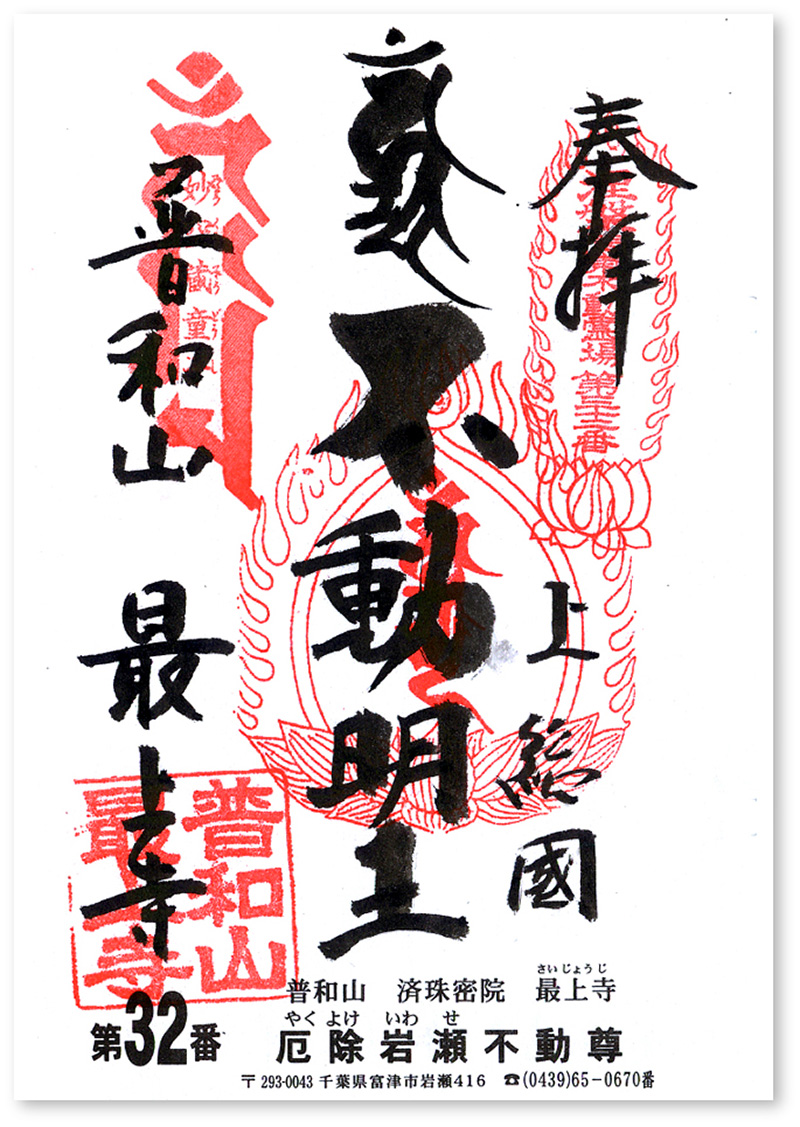 奉拝
上総國
不動明王
普和山
最上寺
第三十二番
普和山
最上寺
普和山 済珠密院 最上寺
さいじょうじ
やくよけ いわせ
厄除岩瀬不動尊
第32番
〒293-0043 千葉県富津市岩瀬416 ☎(0439)65-0670番